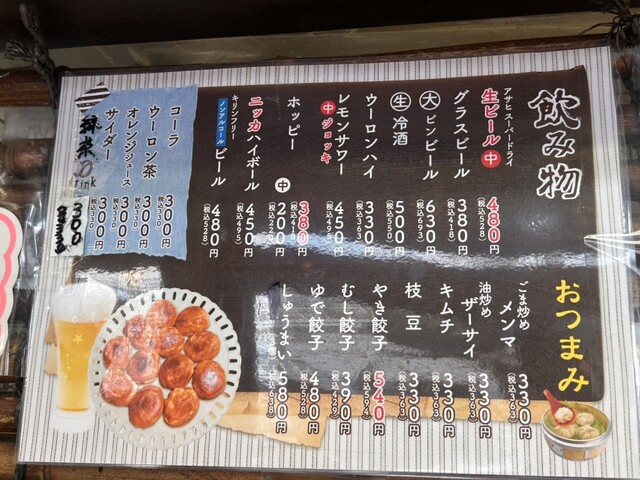 飲み物
アサヒスーパードライ
生ビール中 480円
(税込528)
グラスビール 380円
(税込418)
大ビンビール 630円
(税込693)
生冷酒 500円
(税込550)
ウーロンハイ 330円
(税込363)
レモンサワー 450円
(税込495)
中ジョッキ 380円
(税込418)
ホッピー
中 200円
(税込220)
ニッカハイボール 450円
(税込495)
キリンフリー
ノンアルコールビール 480円
(税込528)
コーラ 300円
(税込330)
ウーロン茶 300円
(税込330)
オレンジジュース 300円
(税込330)
サイダー 300円
(税込330)
300
おつまみ
ごま炒め
メンマ 330円
(税込363)
油炒め
ザーサイ 330円
(税込363)
キムチ 330円
(税込363)
枝豆 330円
(税込363)
やき餃子 540円
(税込594)
むし餃子 390円
(税込429)
ゆで餃子 480円
(税込528)
しゅうまい 580円
(税込638)